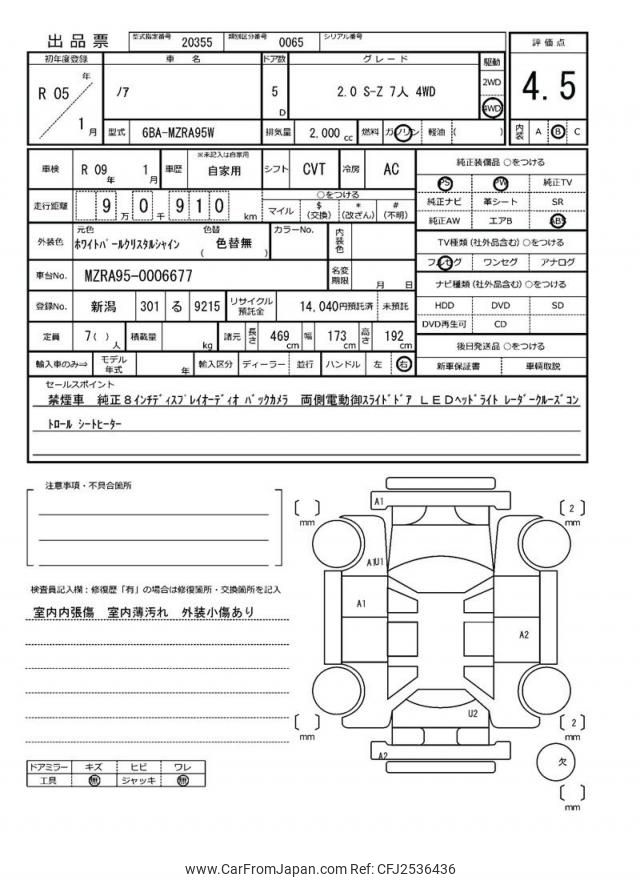 出品票 型式指定番号 20355 類別区分番号 0065 シリアル番号
初年度登録 車名 ドア数 グレード 駆動 評価点
R 05 年 1 月 ノア 5 D 2.0 S-Z 7人 4WD 2WD 4WD 4.5
型式 6BA-MZRA95W 排気量 2,000 cc 燃料 ガソリン 軽油 ( ) 内装 A B C
車検 R 09 年 1 月 車歴 ※未記入は自家用 自家用 シフト CVT 冷房 AC
純正装備品 ○をつける
PS PW 純正TV
走行距離 9 万 0 千 9 1 0 km ○をつける
マイル $ (交換) * (改ざん) # (不明)
純正ナビ 革シート SR
純正AW エアB ABS
外装色 元色 ホワイトパールクリスタルシャイン 色替 ( 色替無 ) カラーNo. 内装色
TV種類 (社外品含む) ○をつける
フルセグ ワンセグ アナログ
車台No. MZRA95-0006677 名変期限 月 日
ナビ種類 (社外品含む) ○をつける
登録No. 新潟 301 る 9215 リサイクル預託金 14,040円預託済 未預託
HDD DVD SD
DVD再生可 CD
定員 7( ) 人 積載量 kg 諸元 長さ 469 cm 幅 173 cm 高さ 192 cm
後日発送品 ○をつける
新車保証書 車輌取説
輸入車のみ⇒ モデル年式 年 輸入区分 ディーラー 並行 ハンドル 左 右
セールスポイント
禁煙車 純正8インチディスプレイオーディオ バックカメラ 両側電動御スライドドア LEDヘッドライト レーダークルーズコン
トロール シートヒーター
注意事項・不具合箇所
検査員記入欄：修復歴「有」の場合は修復箇所・交換箇所を記入
室内内張傷 室内薄汚れ 外装小傷あり
ドアミラー キズ ヒビ ワレ
工具 無 ジャッキ 無
A1
mm
2
mm
A1U1
A1
A2
U2
mm
2
mm
A2
欠
mm
www.CarFromJapan.com Ref: CFJ2536436